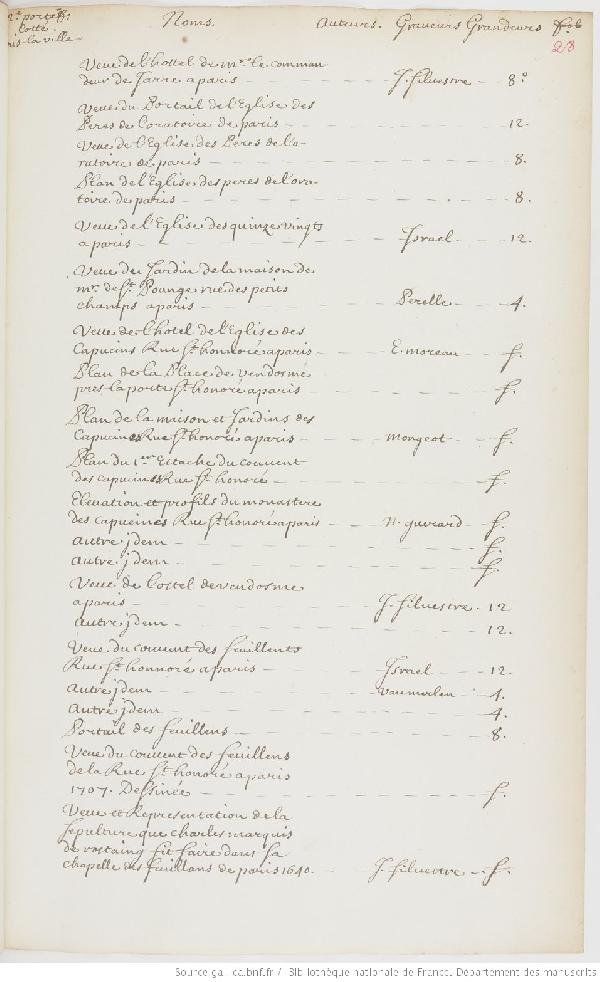 Noms. Auteurs. Graveurs Grandeurs fol
23
cotte
Paris-la ville
Veue de l'hostel de mr. le comman
deur de Jarre a paris - J. silvestre - 8°
Veue du Portail de l'Eglise des
Peres de l'oratoire de paris - 12.
Veue de l'Eglise des Peres de l'o-
ratoire de paris - 8.
Plan de l'Eglise des peres de l'ora-
toire de paris - 8.
Veue de l'Eglise des quinze vingts
a paris - Israel - 12.
Veue du Jardin de la maison de
mr. de St. Pounge rue des petits
champs a paris - Perelle - 4.
Veue de l'hotel de l'Eglise des
Capucins Rue St. honnoré a paris - E. moreau - f.
Plan de la Place de vendosme
pres la porte St. honoré a paris - f.
Plan de la maison et Jardins des
Capucines Rue St. honoré a paris - mongeot - f.
Plan du 1er Estache du couvent
des capucines Rue St. honoré - f.
Elevation et profils du monastere
des capucines Rue St. honoré a paris - N. guerard - f.
autre jdem - f.
autre jdem - f.
Veue de l'ostel de vendosme
a paris - J. silvestre - 12
autre jdem - 12.
Veue du couvent des feuillents
Rue St. honnoré a paris - Israel - 12.
autre jdem - vanmerlen - 4.
autre jdem - 4.
Portail des feuillens - 8.
Veue du couvent des feuillens
de la Rue St. honoré a paris
1707. Dessinée - f.
Veue et Representation de la
sepulture que charles marquis
de rostaing fit faire dans sa
chapelle des feuillans de paris 1640. - J. silvestre - f.
Source gallica.bnf.fr / Bibliothèque nationale de France. Département des manuscrits